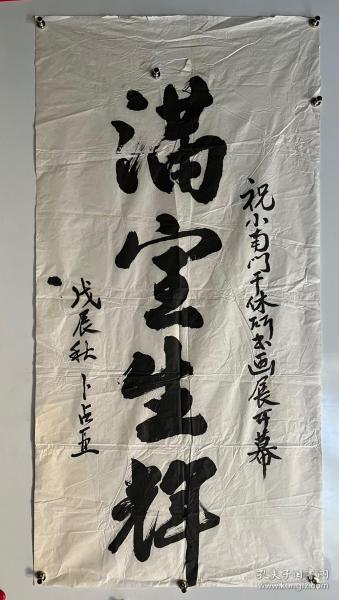 祝小南门干休所书画展开幕
满室生辉
戊辰秋 卜占亚
孔夫子旧书网
www.kongfz.com